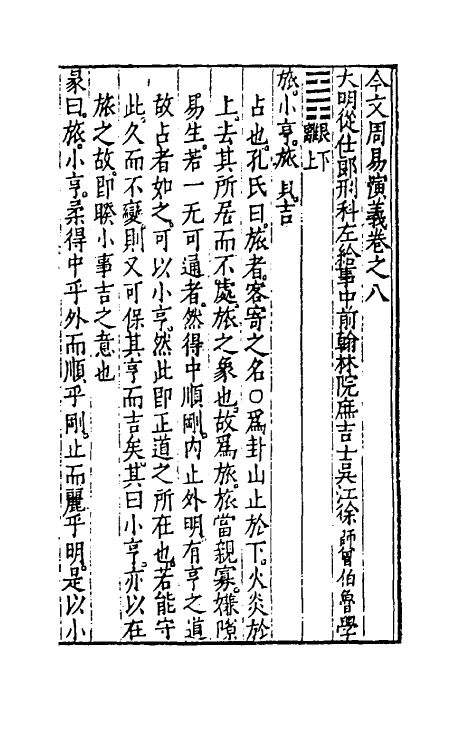 今文周易演義卷之八
大明從仕郎刑科左給事中前翰林院庶吉士吳江徐師曾伯魯學
艮下
離上
旅。小亨。旅貞吉
占也。孔氏曰。旅者。客寄之名○爲卦山止於下。火炎於
上。去其所居而不處。旅之象也。故爲旅。旅當親寡。嫌隙
易生。若一无可通者。然得中順剛。內止外明。有亨之道。
故占者如之。可以小亨。然此即正道之所在也。若能守
此。久而不變。則又可保其亨而吉矣。其曰小亨。亦以在
旅之故。即睽小事吉之意也
彖曰。旅。小亨。柔得中乎外而順乎剛。止而麗乎明。是以小